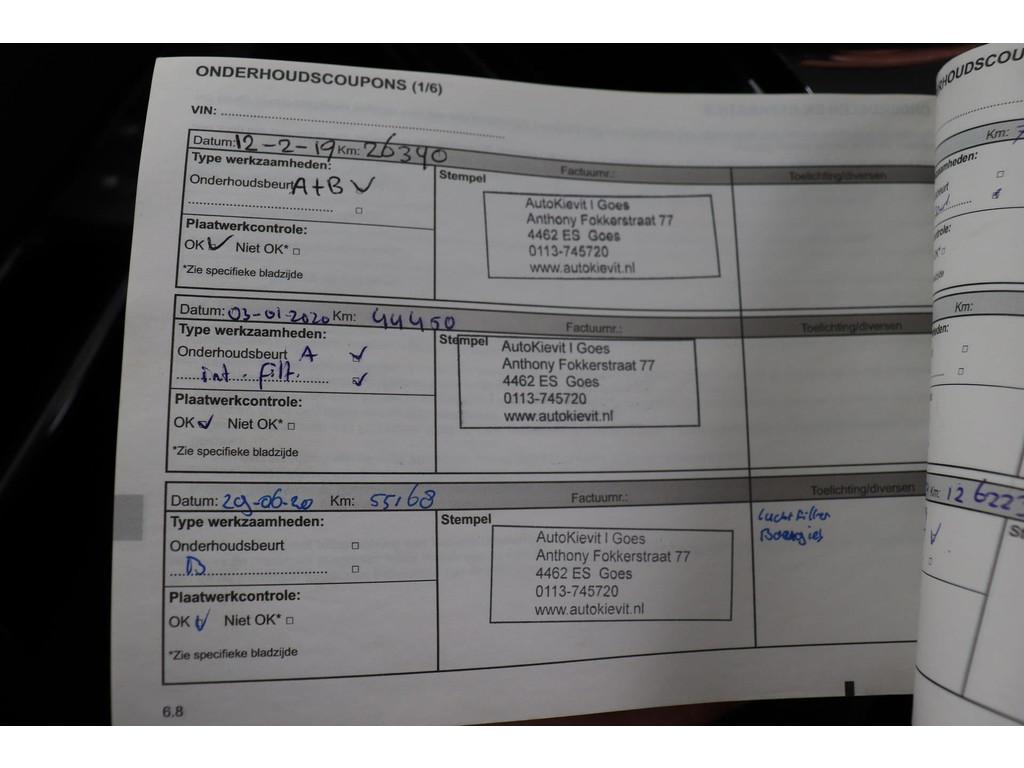 ONDERHOUDSCOUPONS (1/6)
VIN:
Datum: 12-2-19 Km: 26340
Type werkzaamheden:
Onderhoudsbeurt A+B
Plaatwerkcontrole:
OK Niet OK*
*Zie specifieke bladzijde
Stempel
Factuurnr.:
Toelichting/diversen
AutoKievit I Goes
Anthony Fokkerstraat 77
4462 ES Goes
0113-745720
www.autokievit.nl
Datum: 03-01-2020 Km: 44450
Type werkzaamheden:
Onderhoudsbeurt A
int. filt.
Plaatwerkcontrole:
OK Niet OK*
*Zie specifieke bladzijde
Stempel
Factuurnr.:
Toelichting/diversen
AutoKievit I Goes
Anthony Fokkerstraat 77
4462 ES Goes
0113-745720
www.autokievit.nl
Datum: 29-06-20 Km: 55168
Type werkzaamheden:
Onderhoudsbeurt
B
Plaatwerkcontrole:
OK Niet OK*
*Zie specifieke bladzijde
Stempel
Factuurnr.:
Toelichting/diversen
Luchtfilter
Bougies
AutoKievit I Goes
Anthony Fokkerstraat 77
4462 ES Goes
0113-745720
www.autokievit.nl
6.8
Km:
Km:
Km: